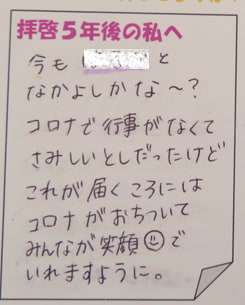 拝啓5年後の私へ
今も と
なかよしかな～?
コロナで行事がなくて
さみしいとしだったけど
これが届くころには
コロナがおちついて
みんなが笑顔で
いれますように。